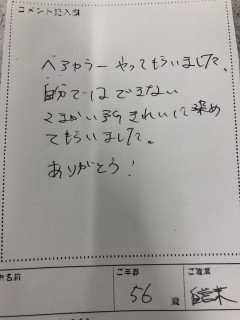 コメント記入欄
ヘアカラー やってもらいました。
自分ではできない
こまかい所きれいに染め
てもらいました。
ありがとう!
お名前
ご年齢
56 歳
ご職業
自営業